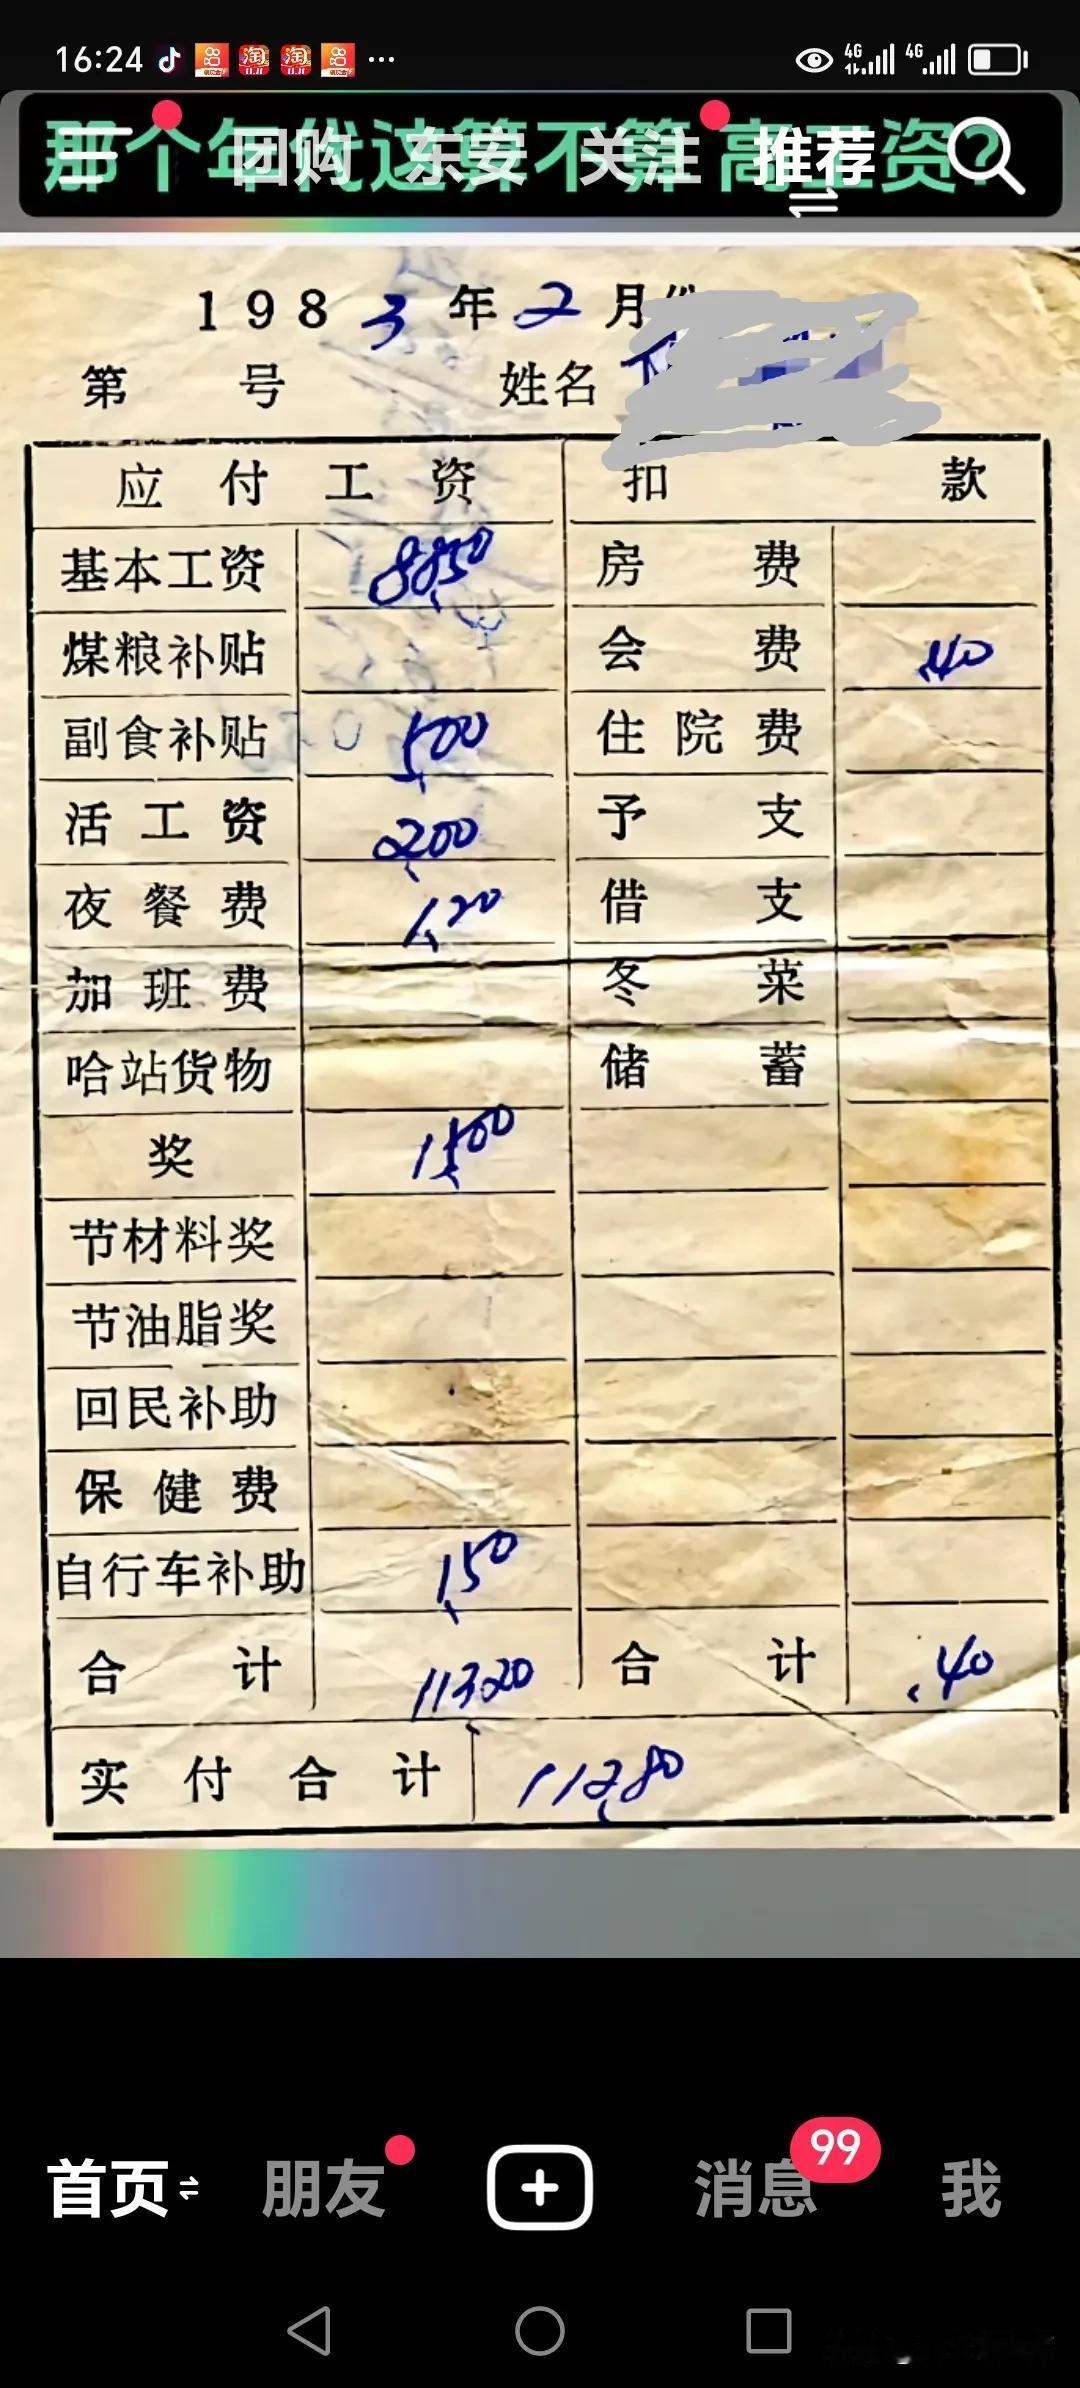 16:24 ... 4G 4G
那个年代这算不算高工资?
团购 东安 关注 推荐
1983年2月份
第 号 姓名
应付工资 扣款
基本工资 88,50 房费
煤粮补贴 会费 .40
副食补贴 5,00 住院费
活工资 2,00 予支
夜餐费 1,20 借支
加班费 冬菜
哈站货物 储蓄
奖 15,00
节材料奖
节油脂奖
回民补助
保健费
自行车补助 1,50
合计 113,20 合计 .40
实付合计 112,80
首页 朋友 消息 99 我